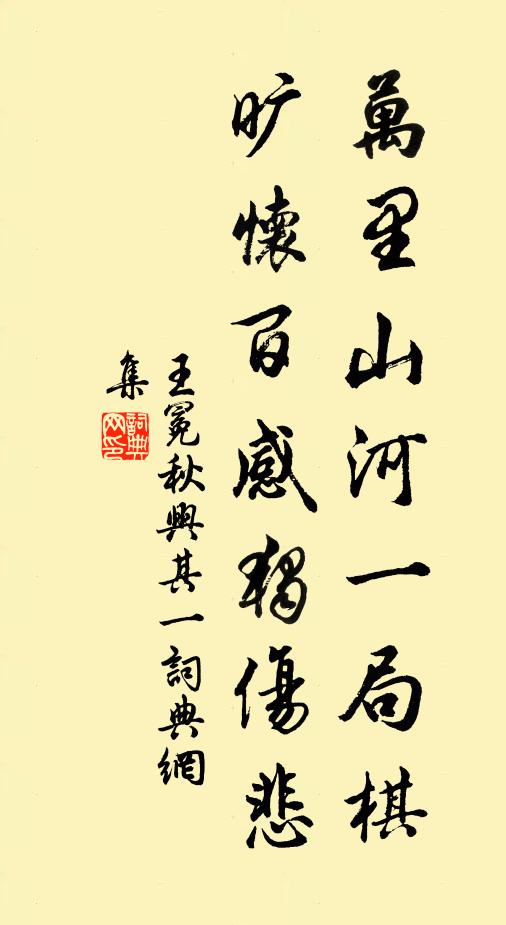 萬里山河一局棋
曠懷百感獨傷悲
王冕秋興其一詞典網
集
詞典
网印